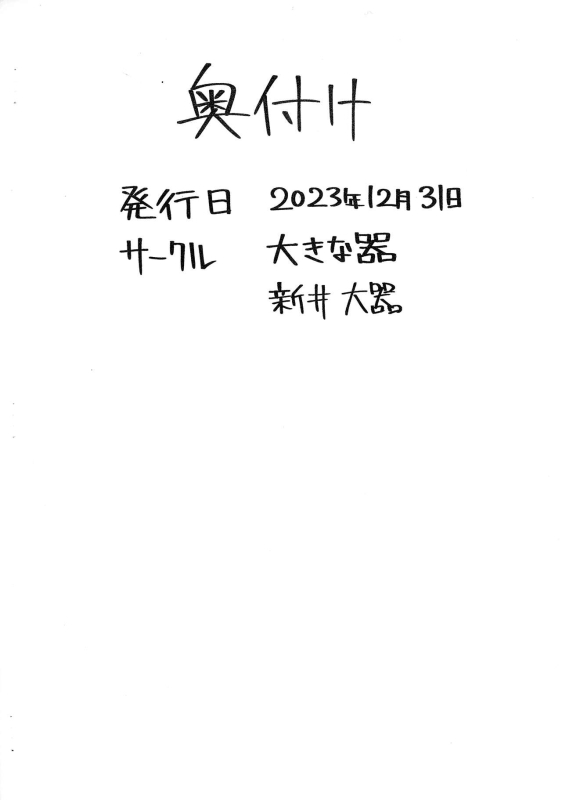 奥付け
発行日 2023年12月31日
サークル 大きな器
新井 大器